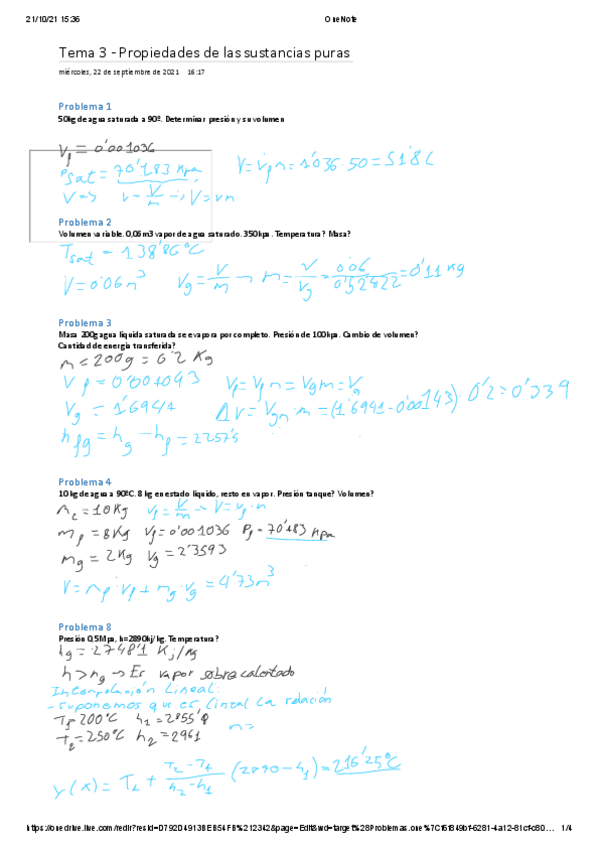 21/10/21 15:36 OneNote
Tema 3 - Propiedades de las sustancias puras
miércoles, 22 de septiembre de 2021 16:17
Problema 1
50kg de agua saturada a 90º. Determinar presión y su volumen
Vf = 0'001036
Psat = 70'183 Kpa V = vf·m = 1'036·50 = 51'8 L
V → v = V/m → V = vm
Problema 2
Volumen variable. 0,06m3 vapor de agua saturado. 350kpa. Temperatura? Masa?
Tsat = 138'86 ºC
V = 0'06 m³ Vg = V/m → m = V/Vg = 0'06/0'52422 = 0'11 kg
Problema 3
Masa 200g agua líquida saturada se evapora por completo. Presión de 100kpa. Cambio de volumen?
Cantidad de energía transferida?
m = 200g = 0'2 Kg
Vf = 0'001043 Vf = Vfm = Vgm = Vg
Vg = 1'6941 ΔV = Vgn·m = (1'6941 - 0'00143) 0'2 = 0'339
hfg = hg - hf = 2257'5
Problema 4
10 kg de agua a 90ºC. 8 kg en estado líquido, resto en vapor. Presión tanque? Volumen?
m = 10Kg vf = V/m → V = vf·m
mf = 8Kg Vf = 0'001036 Pf = 70'183 Kpa
mg = 2Kg Vg = 2'3593
V = mf·vf + mg·vg = 4'73 m³
Problema 8
Presión 0,5Mpa, h=2890kj/kg. Temperatura?
hg = 2748'1 Kj/Kg
h > hg → Es vapor sobrecalentado
Interpolación Lineal:
- suponemos que es lineal la relación
T1 = 200ºC h1 = 2855'8 m =
T2 = 250ºC h2 = 2961
y(x) = T1 + (T2 - T1)/(h2 - h1) (2890 - h1) = 216'25ºC
https://onedrive.live.com/redir?resid=D792D4913BEB54FB%212342&page=Edit&wd=target%28Problemas.one%7C1f61849bf-6281-4a12-81cf-c80… 1/4